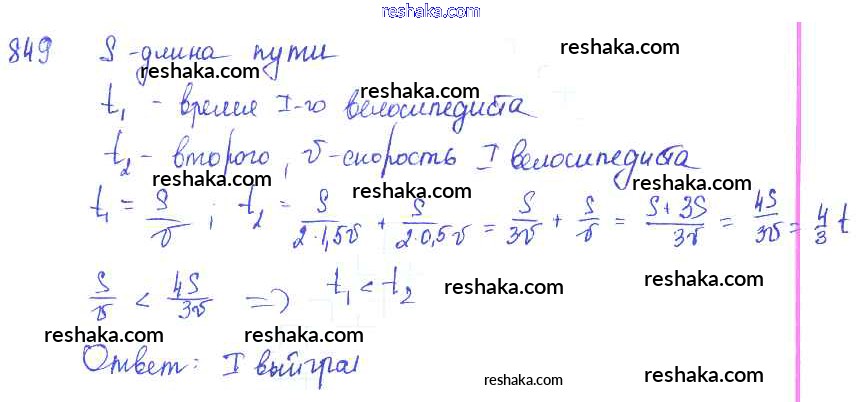 reshaka.com
849 S - длина пути reshaka.com
reshaka.com reshaka.com
t₁ - время I-го велосипедиста
reshaka.com reshaka.com
t₂ - второго, v - скорость I велосипедиста
reshaka.com reshaka.com reshaka.com
t₁ = S/v ; t₂ = S/(2·1,5v) + S/(2·0,5v) = S/3v + S/v = (S+3S)/3v = 4S/3v = 4/3 t
S/v < 4S/3v => t₁ < t₂
reshaka.com reshaka.com
reshaka.com reshaka.com
Ответ: I выйграл
reshaka.com reshaka.com